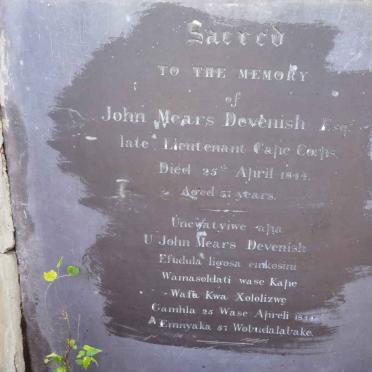 Sacred
TO THE MEMORY
of
John Mears Devenish Esq
late Lieutenant Cape Corps
Died 25th April 1844.
Aged 57 years.
Uncwatyiwe apa
U John Mears Devenish
Efudula ligosa emkosini
Wamasoldati wase Kape
Wafa Kwa Xololizwe
Gamhla 25 Wase Apreli 1844
Emnyaka 57 Wobudala bake.